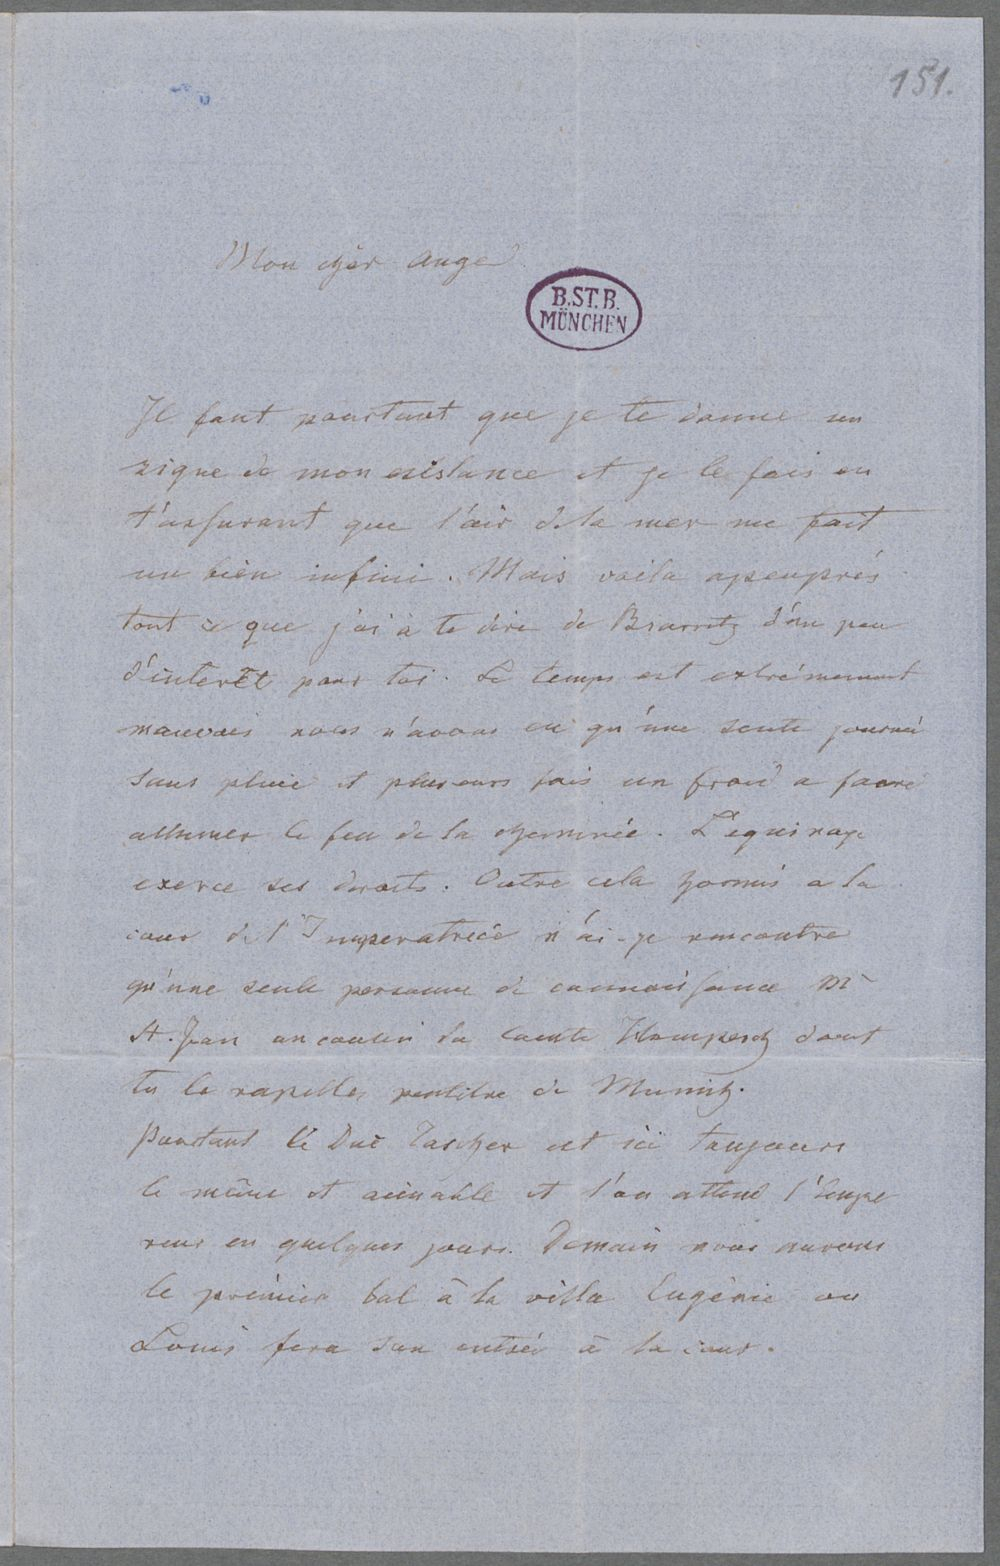 151.
Mon chèr ange
B.ST.B.
MÜNCHEN
Il faut pourtant que je te donne un
signe de mon existance et je le fais en
t'assurant que l'air de la mer me fait
un bien infini. Mais voila apeuprés
tout ce que j'ai à te dire de Biarritz d'un peu
d'intérêt pour toi. Le temps est extrémement
mauvais nous n'avons eu qu'une seule journée
sans pluie et plusieurs fois un froid a faire
allumer le feu de la cheminée. L'equinoxe
exerce ses droits. Outre cela hormis a la
cour de l'Imperatrice n'ai-je rencontre
qu'une seule personne de connaissance Mr
St. Jean un cousin du comte dont
tu te rapelles peutêtre de Munich.
Pourtant le Duc Tascher est ici toujours
le même et aimable et l'on attend l'Empe
reur en quelques jours. Demain nous aurons
le prémier bal à la villa Eugénie ou
Louis fera son entrée à la cour.